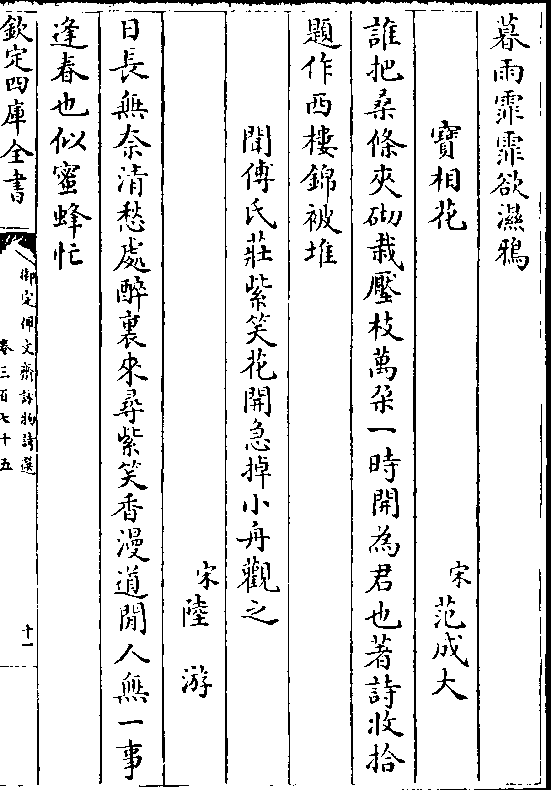 暮雨霏霏欲濕鴉
寳相花
宋范成大
誰把桑條夾砌栽壓枝萬朵一時開為君也著詩收拾
題作西樓錦被堆
聞傅氏莊紫笑花開急掉小舟觀之
宋陸游
日長無奈清愁處醉裏來尋紫笑香漫道閒人無一事
逢春也似蜜蜂忙
欽定四庫全書
御定佩文齋詠物詩選
卷三百七十五
十一